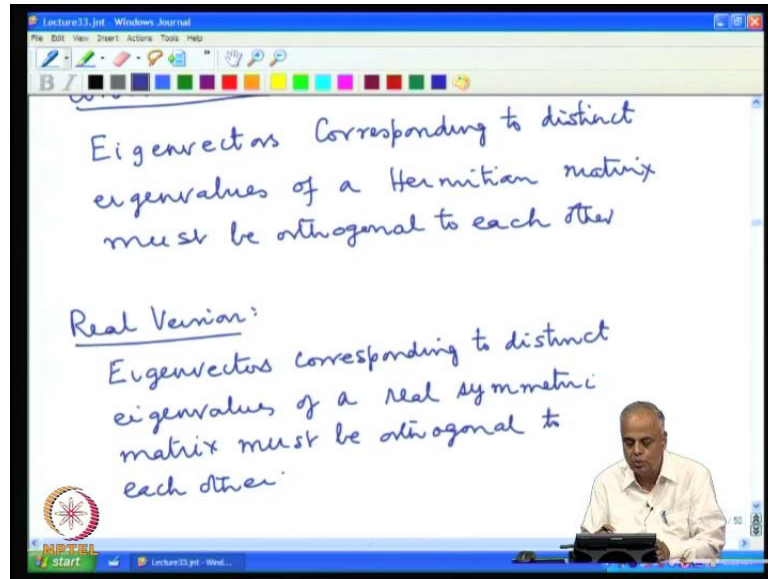 Lecture33.jnt - Windows Journal
File Edit View Insert Actions Tools Help
B I
Eigenvectors Corresponding to distinct
eigenvalues of a Hermitian matrix
must be orthogonal to each other
Real Version:
Eigenvectors corresponding to distinct
eigenvalues of a real symmetric
matrix must be orthogonal to
each other.
/ 50
NPTEL
start Lecture33.jnt - Wind...